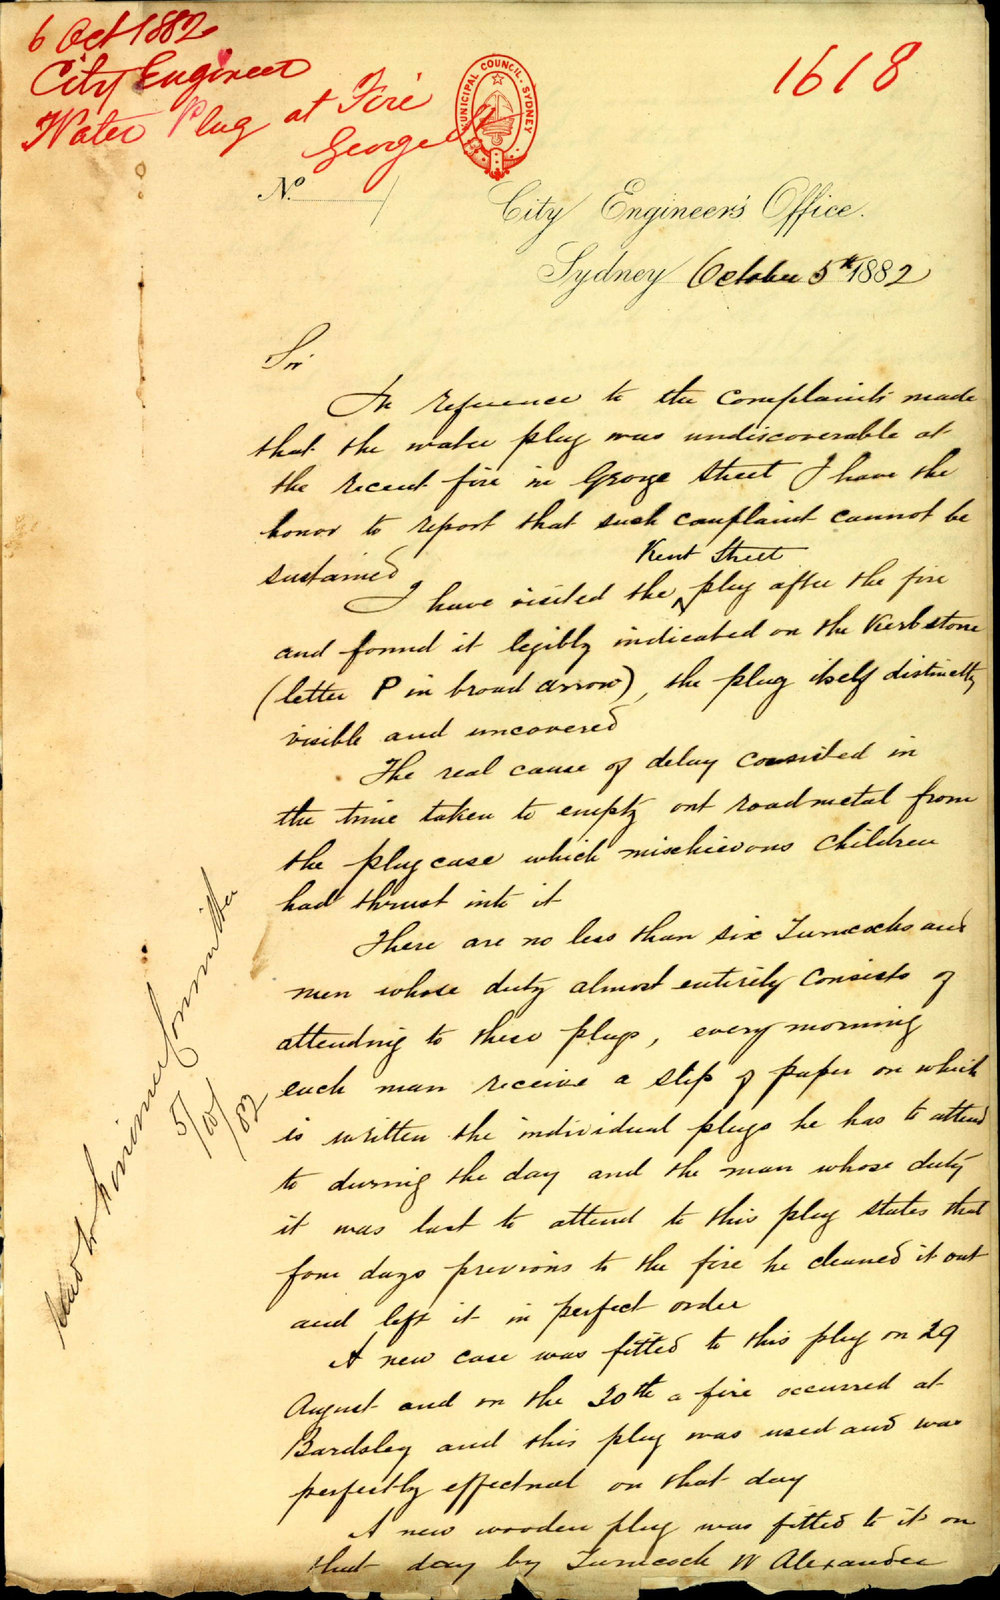 6 Oct 1882
City Engineer
Water Plug at Fire
George St
1618
MUNICIPAL COUNCIL. SYDNEY
No.
City Engineer's Office.
Sydney October 5th 1882
Sir
In reference to the complaints made
that the water plug was undiscoverable at
the recent fire in George Street I have the
honor to report that such complaint cannot be
sustained
Kent Street
I have visited the ^ plug after the fire
and found it legibly indicated on the Kerbstone
(letter P in broad arrow), the plug itself distinctly
visible and uncovered
The real cause of delay consisted in
the time taken to empty out roadmetal from
the plug case which mischievous children
had thrust into it
There are no less than six Turncocks and
men whose duty almost entirely consists of
attending to these plugs, every morning
each man receive a slip of paper on which
is written the individual plugs he has to attend
to during the day and the man whose duty
it was last to attend to this plug states that
four days previous to the fire he cleaned it out
and left it in perfect order
A new case was fitted to this plug on 29
August and on the 30th a fire occurred at
Bardsley and this plug was used and was
perfectly effectual on that day
A new wooden plug was fitted to it on
that day by Turncock W Alexander
Committee
5/10/82